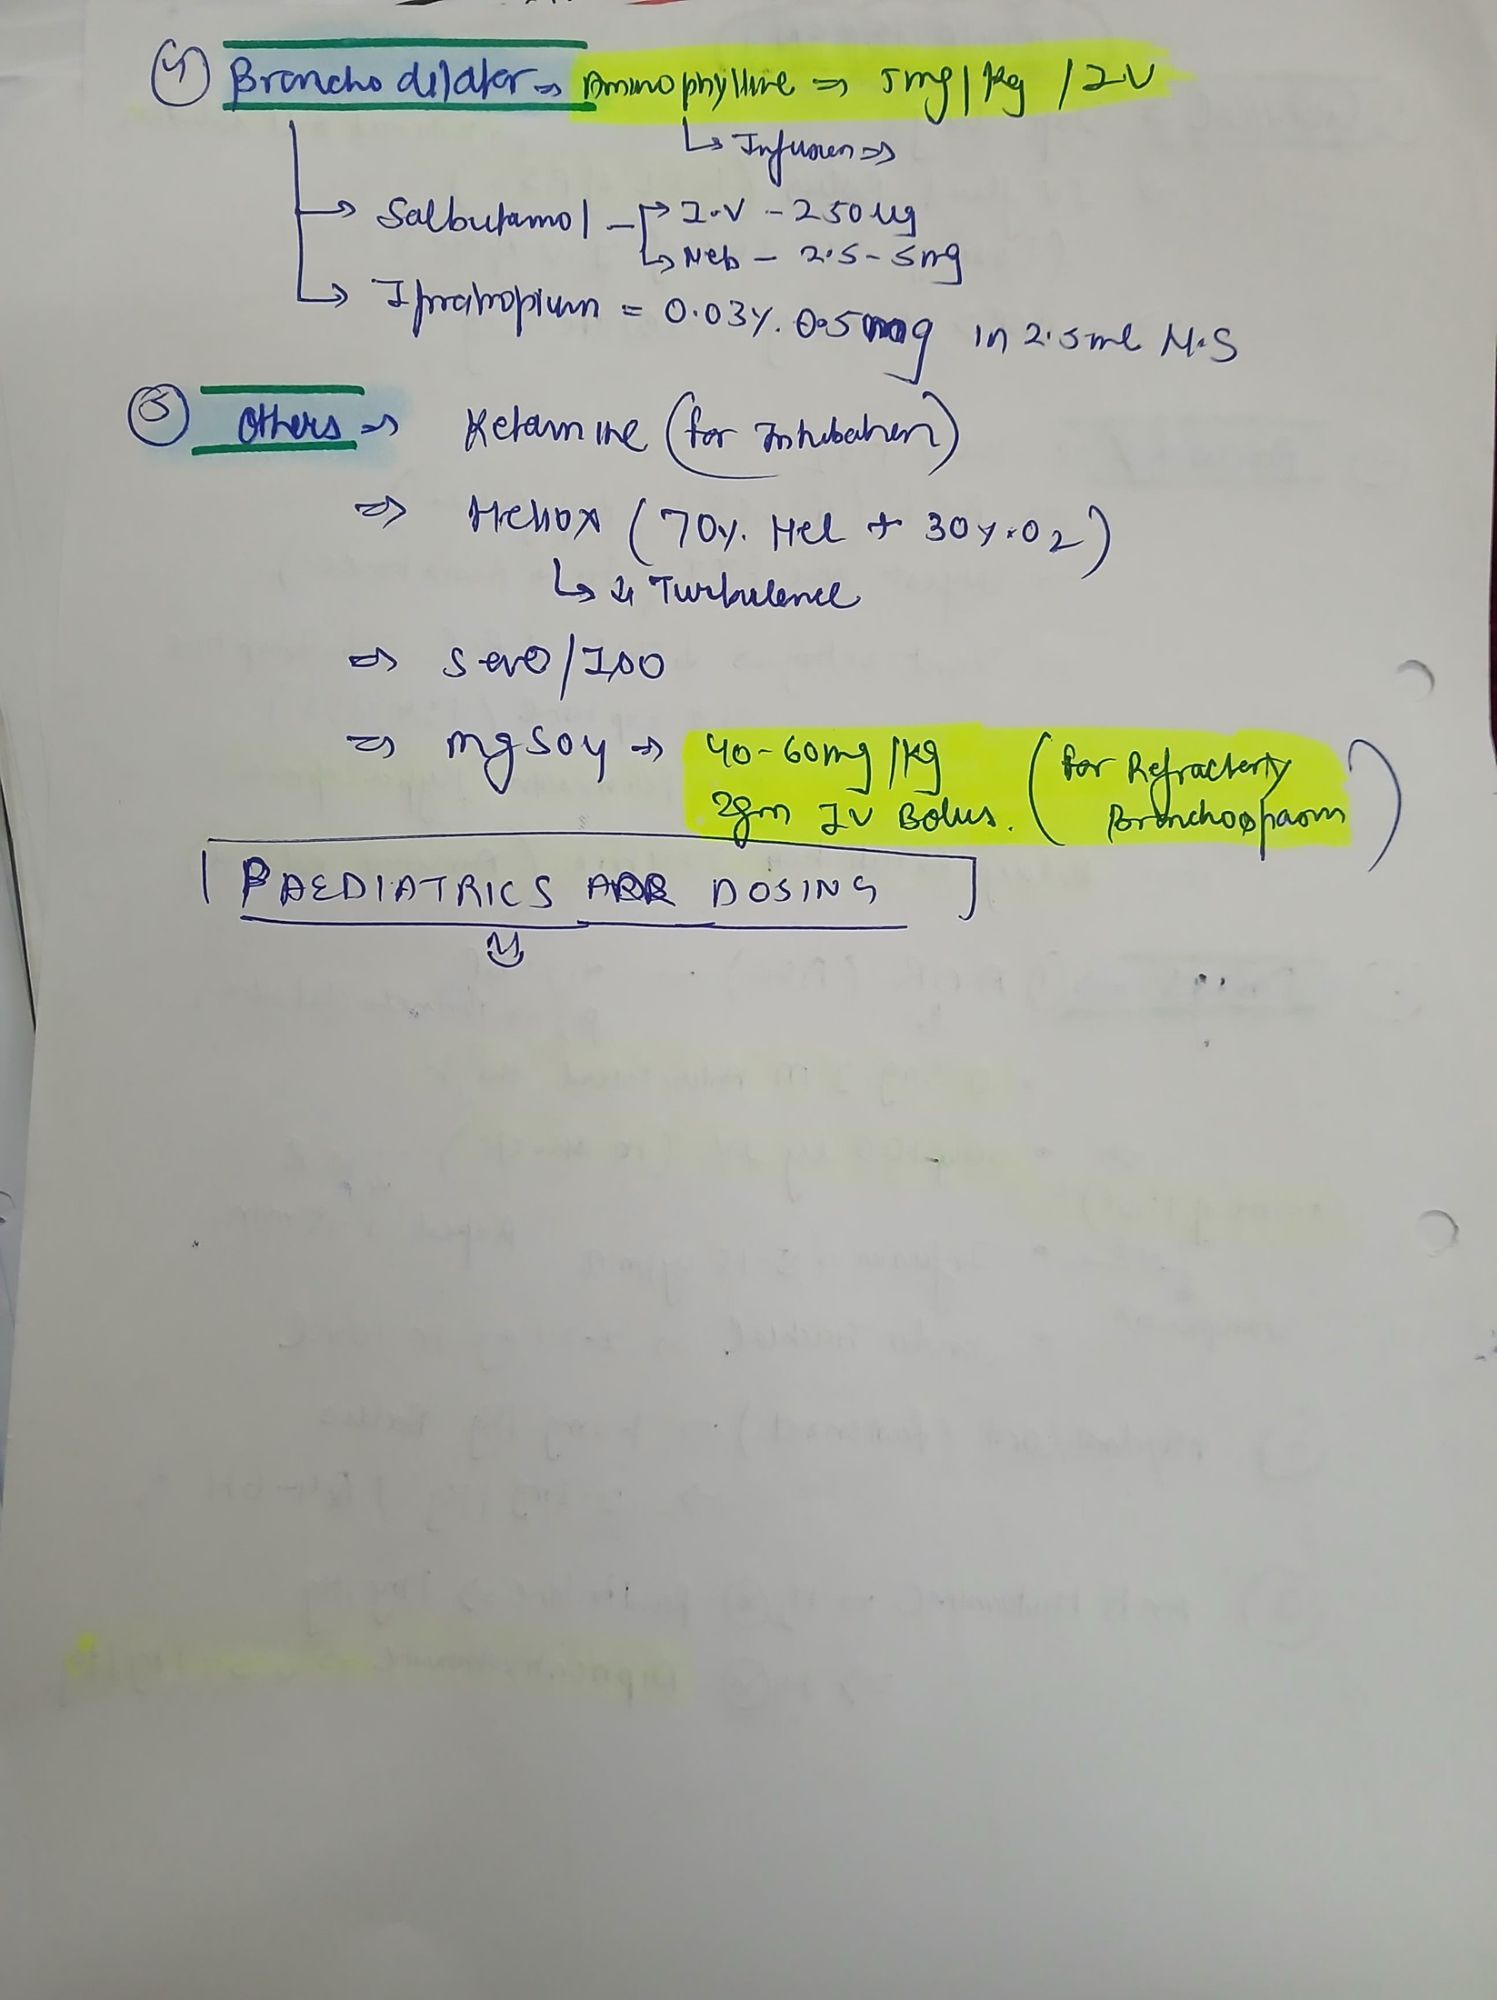 ④ Bronchodilator ⇒ Aminophylline ⇒ 5mg/kg/IV
↳ Infusion ⇒
→ Salbutamol → I.V - 250 ug
↳ Neb - 2.5 - 5mg
→ Ipratropium = 0.03%. 0.5mg in 2.5ml N.S
⑤ Others ⇒ Ketamine (for Intubation)
⇒ Heliox (70%. Hel + 30%. O2)
↳ ↓ Turbulence
⇒ Sevo/ISO
⇒ mgSO4 → 40-60mg/kg (for Refractory
2gm IV Bolus. Bronchospasm)
PAEDIATRICS DOSING